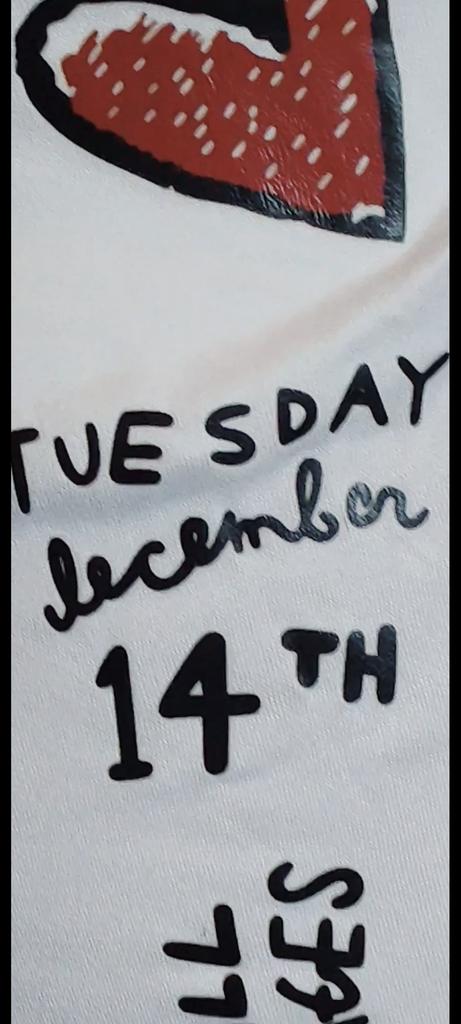 TUESDAY
december
14TH